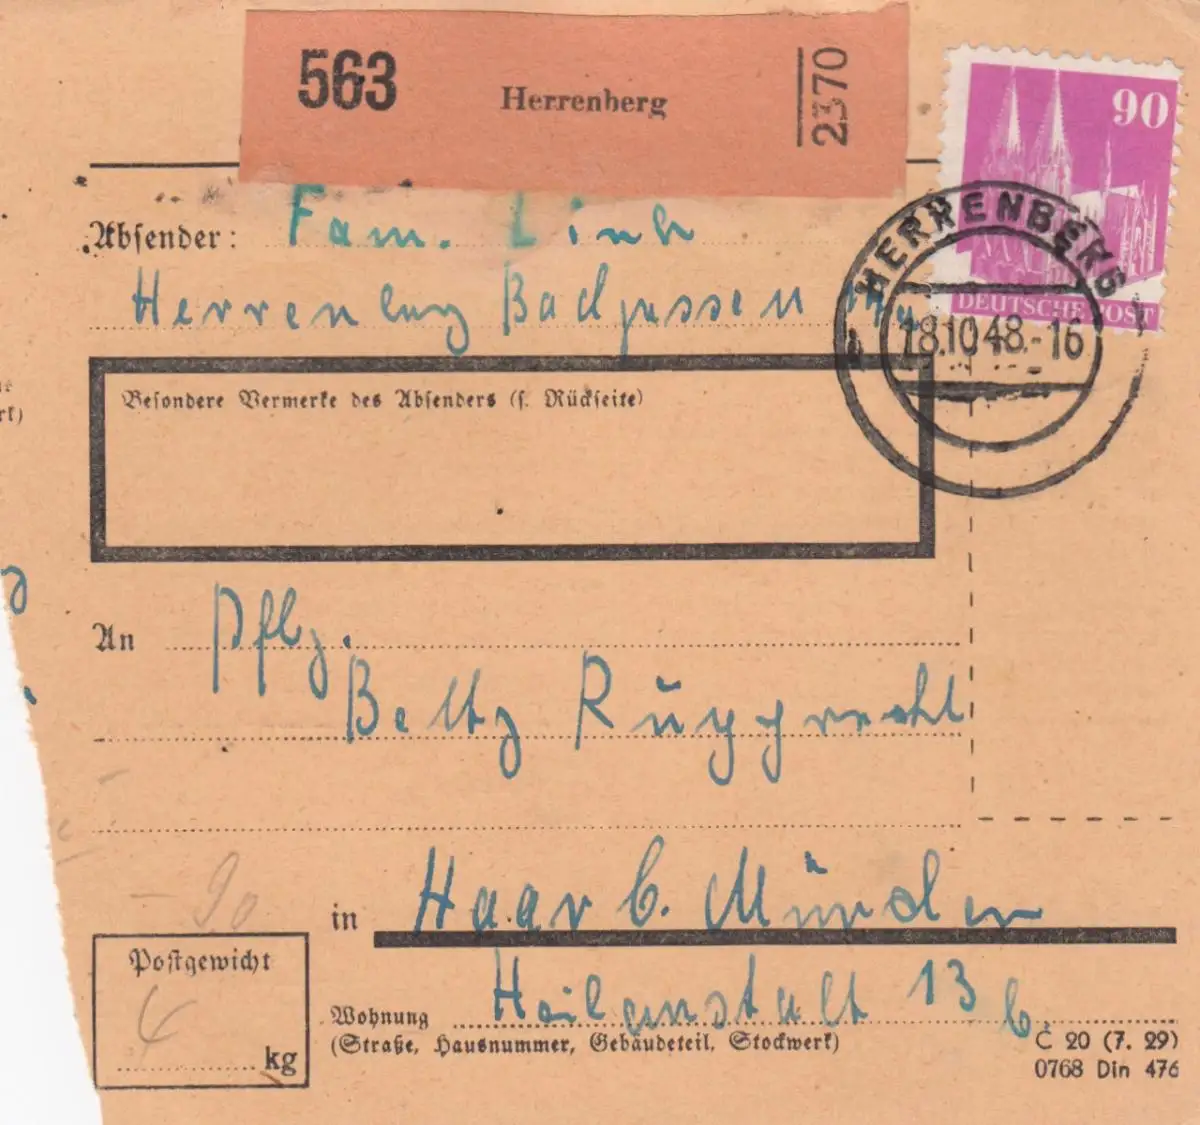 563
Herrenberg
2370
90
DEUTSCHE POST
HERRENBERG
18.10.48.-16
Absender: Fam. Link
Herrenberg Badgassen
Besondere Vermerke des Absenders (s. Rückseite)
An Pflg.
Beltz Rupprecht
-90
in Haar b. München
Postgewicht
4
kg
Wohnung Heilanstalt 13 b.
(Straße, Hausnummer, Gebäudeteil, Stockwerk)
C 20 (7. 29)
0768 Din 476